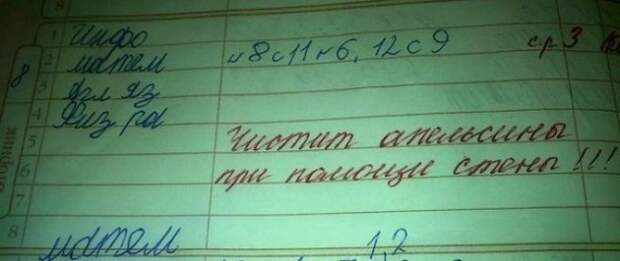 8
1 Инфо
2 матем н 8 с 11 н 6, 12 с 9 ср 3
3 Агл яз
4 Физ ра
5 Чистит апельсины
6 при помощи стены !!!
7
8
Вторник
матем 1,2